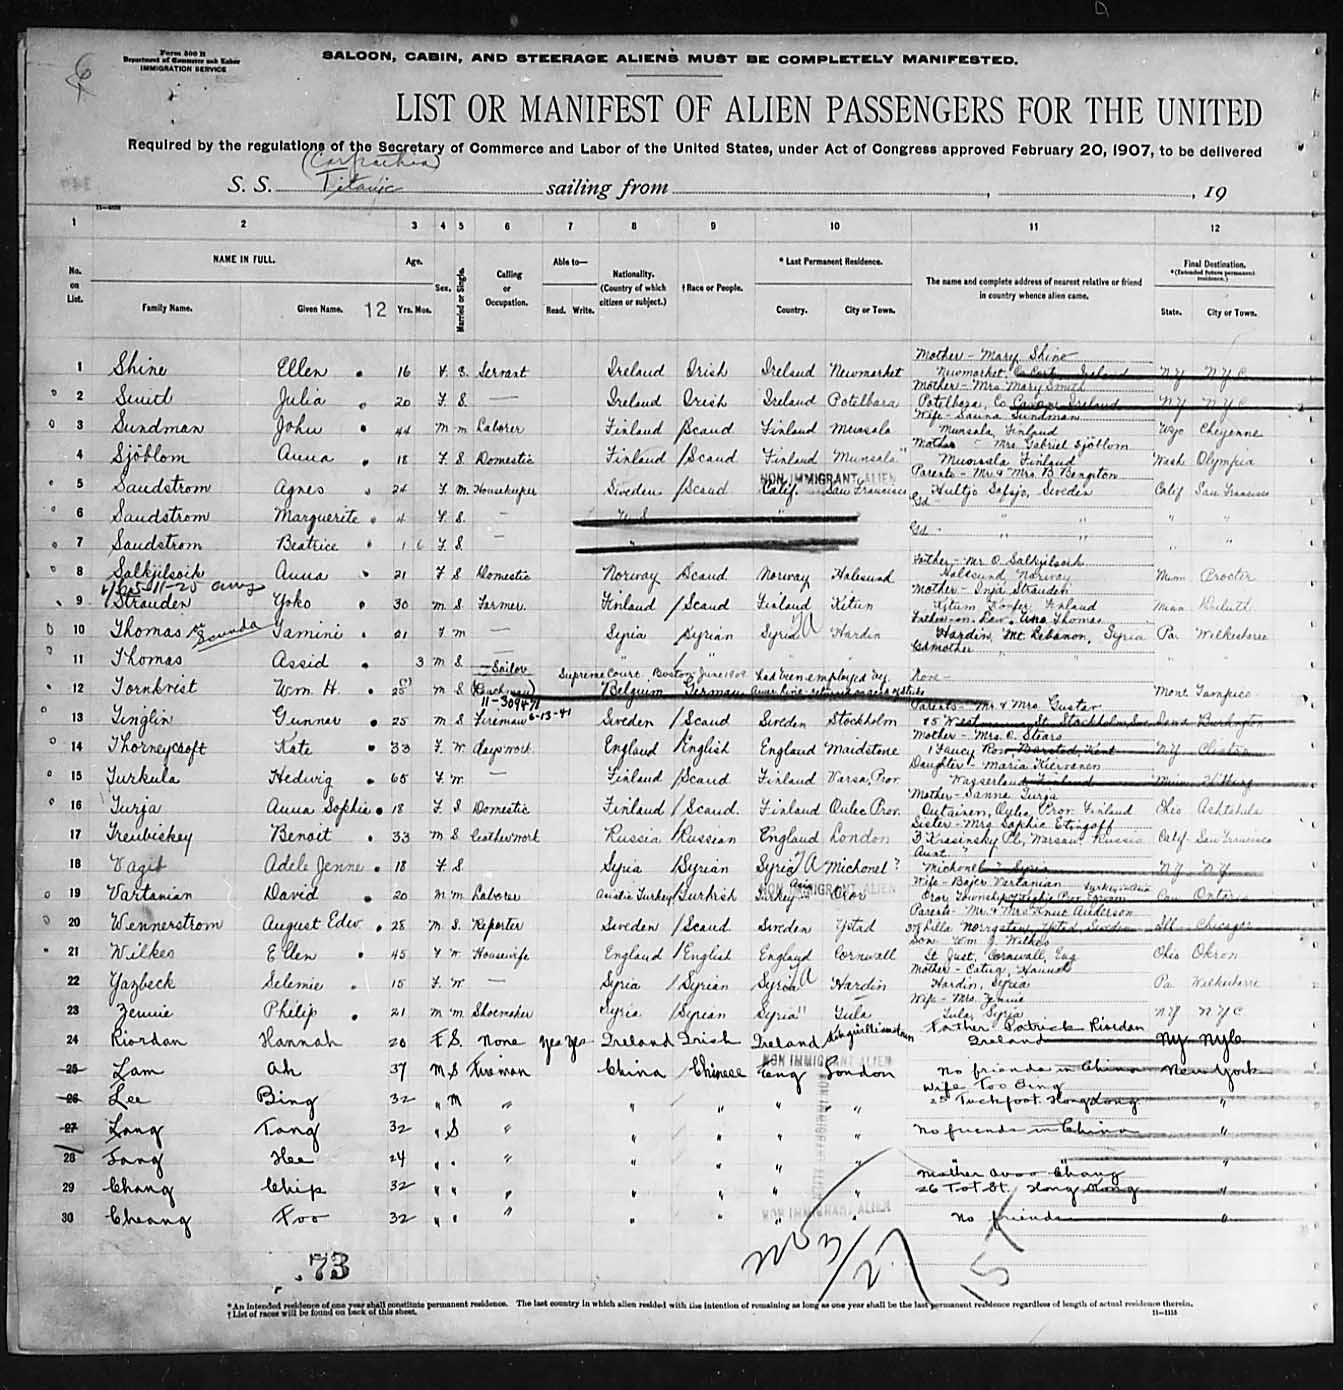 Form 500 B
Department of Commerce and Labor
IMMIGRATION SERVICE
SALOON, CABIN, AND STEERAGE ALIENS MUST BE COMPLETELY MANIFESTED.
LIST OR MANIFEST OF ALIEN PASSENGERS FOR THE UNITED
Required by the regulations of the Secretary of Commerce and Labor of the United States, under Act of Congress approved February 20, 1907, to be delivered
(Carpathia)
S. S. Titanic sailing from , , 19
1 2 3 4 5 6 7 8 9 10 11 12
No. on List. NAME IN FULL. Age. Sex. Married or Single. Calling or Occupation. Able to— Nationality. (Country of which citizen or subject.) †Race or People. * Last Permanent Residence. The name and complete address of nearest relative or friend in country whence alien came. Final Destination. *(Intended future permanent residence.)
Family Name. Given Name. 12 Yrs. Mos. Read. Write. Country. City or Town. State. City or Town.
Mother - Mary Shine
1 Shine Ellen 16 F. S. Servant Ireland Irish Ireland Newmarket Newmarket, Co Cork Ireland N.Y. N.Y.C.
Mother - Mrs Mary Smith
2 Smith Julia 20 F. S. — Ireland Irish Ireland Potelbara Potelbara, Co Cavan Ireland N.Y. N.Y.C.
Wife - Sanna Sundman
3 Sundman John 44 M m Laborer Finland Scand Finland Munsala Munsala, Finland Wyo Cheyenne
Mother - Mrs. Gabriel Sjöblom
4 Sjöblom Anna 18 F. S. Domestic Finland Scand Finland Munsala Munsala Finland Wash Olympia
NON IMMIGRANT ALIEN Parents - Mr & Mrs B Bengston
5 Sandstrom Agnes 24 F. M. Housekeeper Sweden Scand Calif San Francisco Hultjo Safsjo, Sweden Calif San Francisco
6 Sandstrom Marguerite 4 F. S. — U S " Gd - " " " "
7 Sandstrom Beatrice 1 6 F. S. — " Gd - " " " "
Father - Mr O. Salkjilsoik
8 Salkjilsoik Anna 21 F S Domestic Norway Scand Norway Halesund Halesund Norway Minn Procter
Mother - Inja Strauden
9 Strauden Yoko 30 m. S. Farmer Finland Scand Finland Kitun Kitum Finland Minn Duluth
Father-in-Law - Thomas
10 Thomas Tamini 21 F m — Syria Syrian Syria Hardin Hardin, Mt Lebanon, Syria Pa Wilkesbarre
Gdmother
11 Thomas Assid 3 m S. — " " " "
Sailor Supreme Court Boston June 1909 Had been employed by None -
12 Tornkvist Wm. H. 25 m. S Belgium German Mont Tampico
11-309471 Parents - Mr & Mrs Gustav
13 Tinglin Gunnar 25 m S Fireman 6-13-41 Sweden Scand Sweden Stockholm 45 West St. Stockholm, Swe Iowa Burlington
Mother - Mrs. C. Stears
14 Thorneycroft Kate 33 F. W days work England English England Maidstone 1 Fancy Row Barsted, Kent N.Y. Clinton
Daughter - Maria Kiervanen
15 Turkula Hedwig 65 F. W. — Finland Scand Finland Varsa, Prov. Wasserland, Finland Minn Hibbing
Mother - Sanna Turja
16 Turja Anna Sophie 18 F. S Domestic Finland Scand. Finland Oulec Prov. Outainen, Prov. Finland Ohio Ashtabula
Sister - Mrs Sophie Etingoff
17 Treubiskey Benoit 33 m S Leatherwork Russia Russian England London 3 Krasinsky Pl, Warsaw, Russia Calif San Francisco
Aunt "
18 Vagib Adele Jenne 18 F. S. Syria Syrian Syria Michonel ? Michonel Syria N.Y. N.Y.
NON IMMIGRANT ALIEN Wife - Bajer Vartanian
19 Vartanian David 20 m m Laborer Asiatic Turkey Turkish Turkey in Asia Oror Oror, Township Can Ontario
Parents - Mr. & Mrs Knut Anderson
20 Wennerstrom August Edw. 28 m. S Reporter Sweden Scand. Sweden Ystad Lilla Norrgatan, Ystad, Sweden Ill. Chicago
Son - Wm J. Wilkes
21 Wilkes Ellen 45 F W Housewife England English England Cornwall St Just, Cornwall, Eng Ohio Okron
Mother - Catug, Hannah
22 Yazbeck Selemie 15 F. W — Syria Syrian Syria Hardin Hardin, Syria Pa Wilkesbarre
Wife - Mrs. Zennie
23 Zennie Philip 21 m m Shoemaker Syria Syrian Syria " Tula Tula, Syria N.Y. N.Y.C
Father Patrick Riordan
24 Riordan Hannah 20 F S. None yes yes Ireland Irish Ireland Ireland Ny Nyc
NON IMMIGRANT ALIEN
25 Lam Ah 37 M S Fireman China Chinese Eng London No friends in China New York
Wife Too Bing
26 Lee Bing 32 " M " " " " " 25 Tuckfoot Hongkong "
27 Lang Tang 32 " S " " " " " No friends in China "
28 Fang Hee 24 " " " " " " " " "
Mother Avoo Chang
29 Chang Chip 32 " " " " " " " 26 Tot St. Hong Kong "
NON IMMIGRANT ALIEN
30 Cheang Foo 32 " " " " " " " No friends "
73
*An intended residence of one year shall constitute permanent residence. The last country in which alien resided with the intention of remaining as long as one year shall be the last permanent residence regardless of length of actual residence therein.
†List of races will be found on back of this sheet.